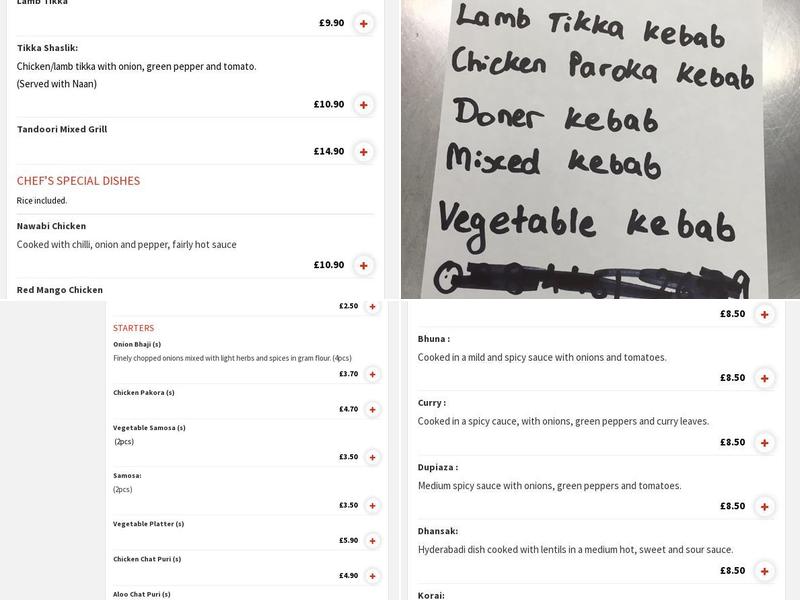 Lamb Tikka
£9.90
Tikka Shaslik:
Chicken/lamb tikka with onion, green pepper and tomato.
(Served with Naan)
£10.90
Tandoori Mixed Grill
£14.90
CHEF'S SPECIAL DISHES
Rice included.
Nawabi Chicken
Cooked with chilli, onion and pepper, fairly hot sauce
£10.90
Red Mango Chicken
Lamb Tikka kebab
Chicken Paroka kebab
Doner kebab
Mixed kebab
Vegetable kebab
£2.50
STARTERS
Onion Bhaji (s)
Finely chopped onions mixed with light herbs and spices in gram flour. (4pcs)
£3.70
Chicken Pakora (s)
£4.70
Vegetable Samosa (s)
(2pcs)
£3.50
Samosa:
(2pcs)
£3.50
Vegetable Platter (s)
£5.90
Chicken Chat Puri (s)
£4.90
Aloo Chat Puri (s)
£8.50
Bhuna :
Cooked in a mild and spicy sauce with onions and tomatoes.
£8.50
Curry :
Cooked in a spicy cauce, with onions, green peppers and curry leaves.
£8.50
Dupiaza :
Medium spicy sauce with onions, green peppers and tomatoes.
£8.50
Dhansak:
Hyderabadi dish cooked with lentils in a medium hot, sweet and sour sauce.
£8.50
Korai: